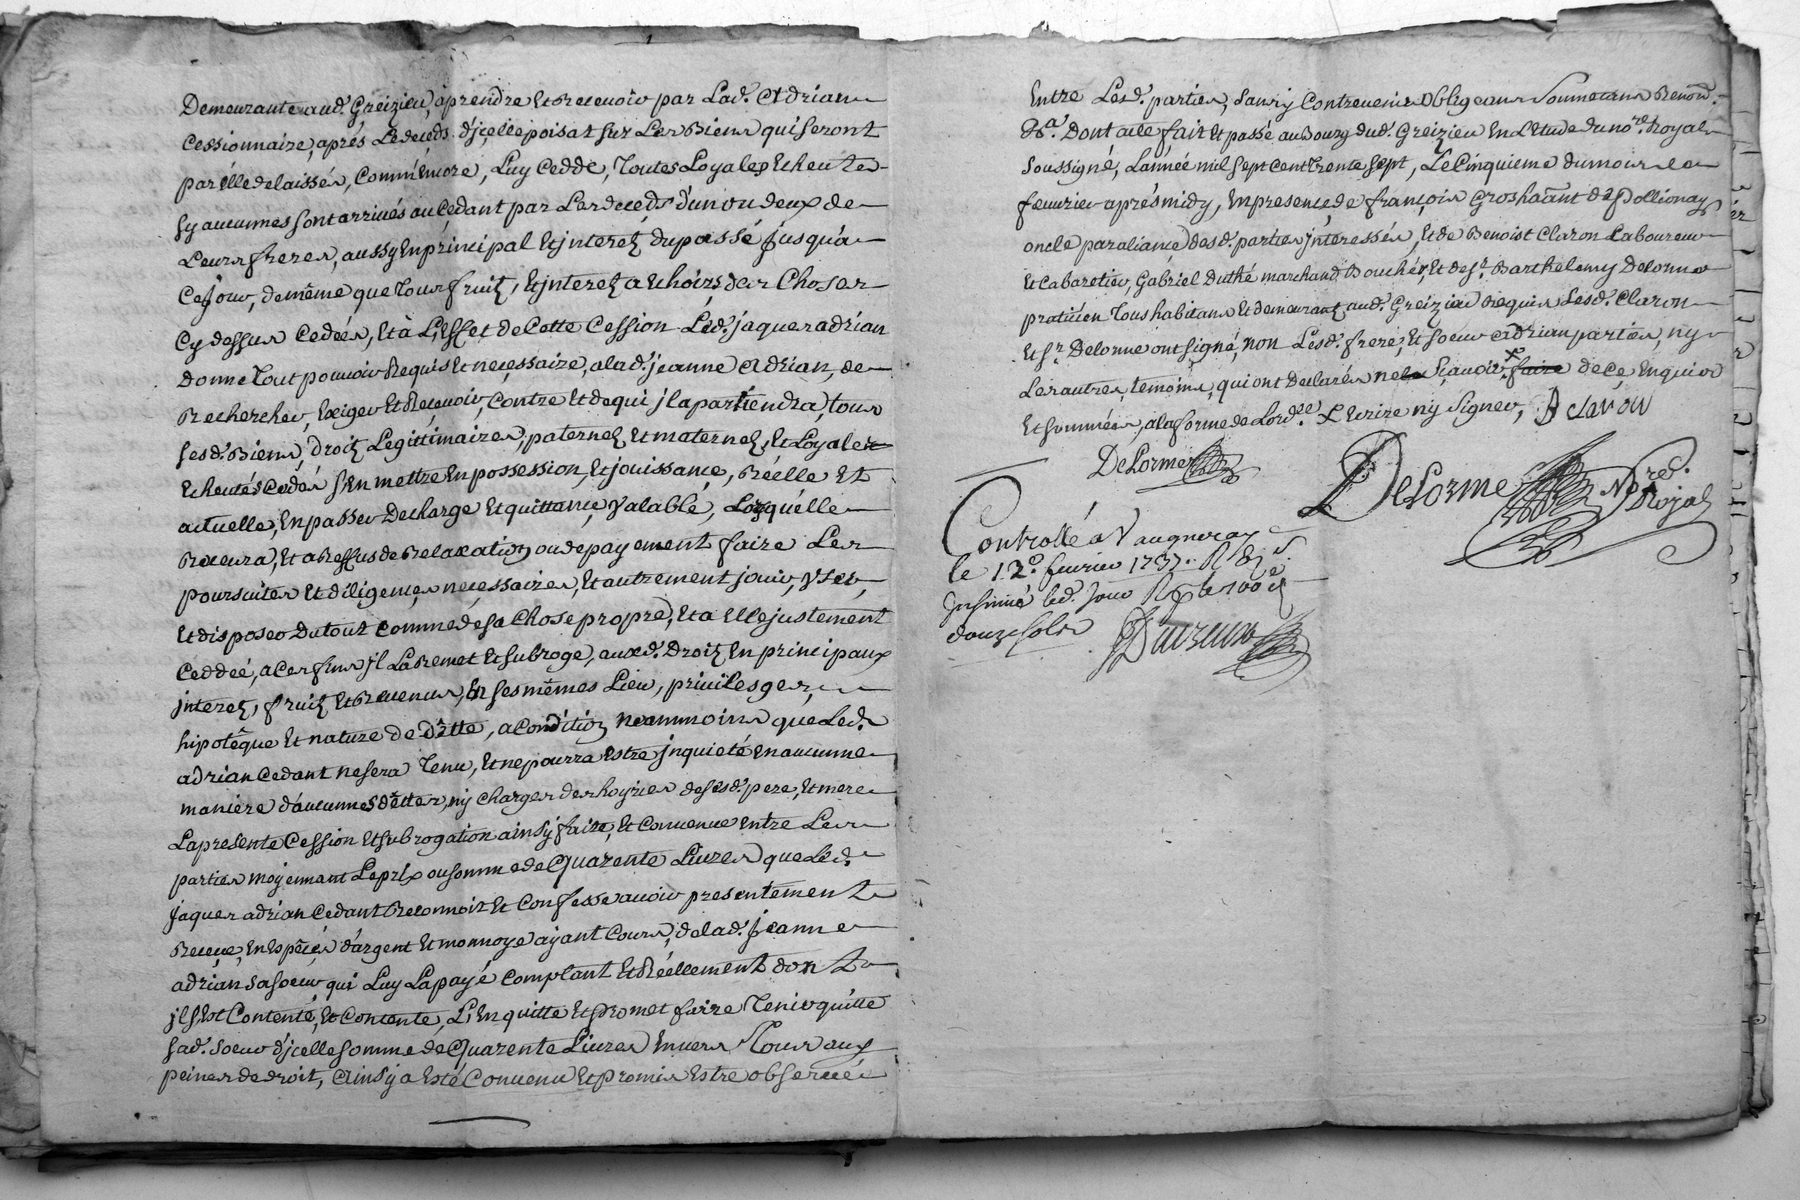 Demeurante aud. Greizieu, à prendre Et Recevoir par Lad. Adrian
Cessionnaire, aprés Le deceds d'jcelle poisat sur Les Biens qui seront
par Elle delaissés, Comm'Encore, Luy Cedde, Toutes Loyales Echeutes
sy aucunnes sont arrivés au Cedant par Les deceds d'un ou deux de
Leurs freres, aussy En principal Et jnterez du passé jusqu'a
Ce jour, de même que Tous fruitz, Et jnterez a Echoirs des Choses
Cy dessus Cedées, Et à L'Effet de Cette Cession Led. jaques adrian
donne Tout pouvoir Requis Et necessaire, a lad. jeanne Adrian, de
Rechercher, Exiger Et Recevoir, Contre Et de qui jl apartiendra, tous
sesd. Biens, droitz Legittimaires, paternelz Et maternelz, Et Loyales
Echeutes Cedés s'En mettre En possession, Et jouissance, Réelle Et
actuelle, En passer Decharge Et quittance Valable, Lorsqu'elle
Recevra, Et a Reffus de Relaxation ou de payement faire Les
poursuites Et diligences necessaires, Et autrement jouir, Vser,
Et disposer Du tout Comme de sa Chose propre, Et a Elle justement
Ceddeé, a Ces fins jl La Remet Et subroge, auxd. Droitz En principaux
jnterez, fruitz Et Revenus, En ses mêmes Lieu, privilesges,
hipotêque Et nature de dêtte, a Condition neammoins que Led.
adrian Cedant ne sera Tenu, Et ne pourra Estre jnquieté En aucunne
maniere d'aucunnes dêttes, ny Charges des hoyries de sesd. pere, Et mere
La presente Cession Et subrogation ainsy faite, Et Convenue Entre Les
parties moyennant Le prix ou somme de Quarente Livres que Led.
jaques adrian Cedant Reconnoit Et Confesse avoir presentement
Receue, En Espéces d'argent Et monnoye ayant Cours, de lad. jeanne
adrian sa soeur qui Luy La payé Comptant Et Réellement dont
jl s'Est Contenté, Et Contente, L'En quitte Et promet faire Tenir quitte
sad. soeur d'jcelle somme de Quarente Livres Envers Tous aux
peines de droit, Ainsy a Esté Convenu Et promis Estre observé
Entre Lesd. parties, sans y Contrevenir Obligeans Soumettans Renond.
&a. Dont acte fait Et passé au Bourg dud. Greizieu En L'Etude du nore. Royal
soussigné, L'année mil sept cent trente sept, Le Cinquieme du mois de
feuvrier aprés midy, En presence de françois Groshaant de Pollionay
oncle par aliance desd. parties jnteressés, Et de Benoist Claron Laboureur
Et Cabaretier, Gabriel Duthé marchand Boucher, Et de sr. Barthelemy Delorme
praticien Tous habitans Et demeurant aud. Greizieu Requis Lesd. Claron
Et sr. Delorme ont signé, non Lesd. frere, Et soeur adrian parties, ny
Les autres temoins, qui ont declarés ne sçavoir faire de Ce Enquis
Et sommés, a la forme de Lord.ce L'Ecrire ny signer, B claron
Delorme
Delorme Nore. Royal
Controllé a Vaugneray
le 12e. fevrier 1737.
Jnsinué led. jour
douze sols